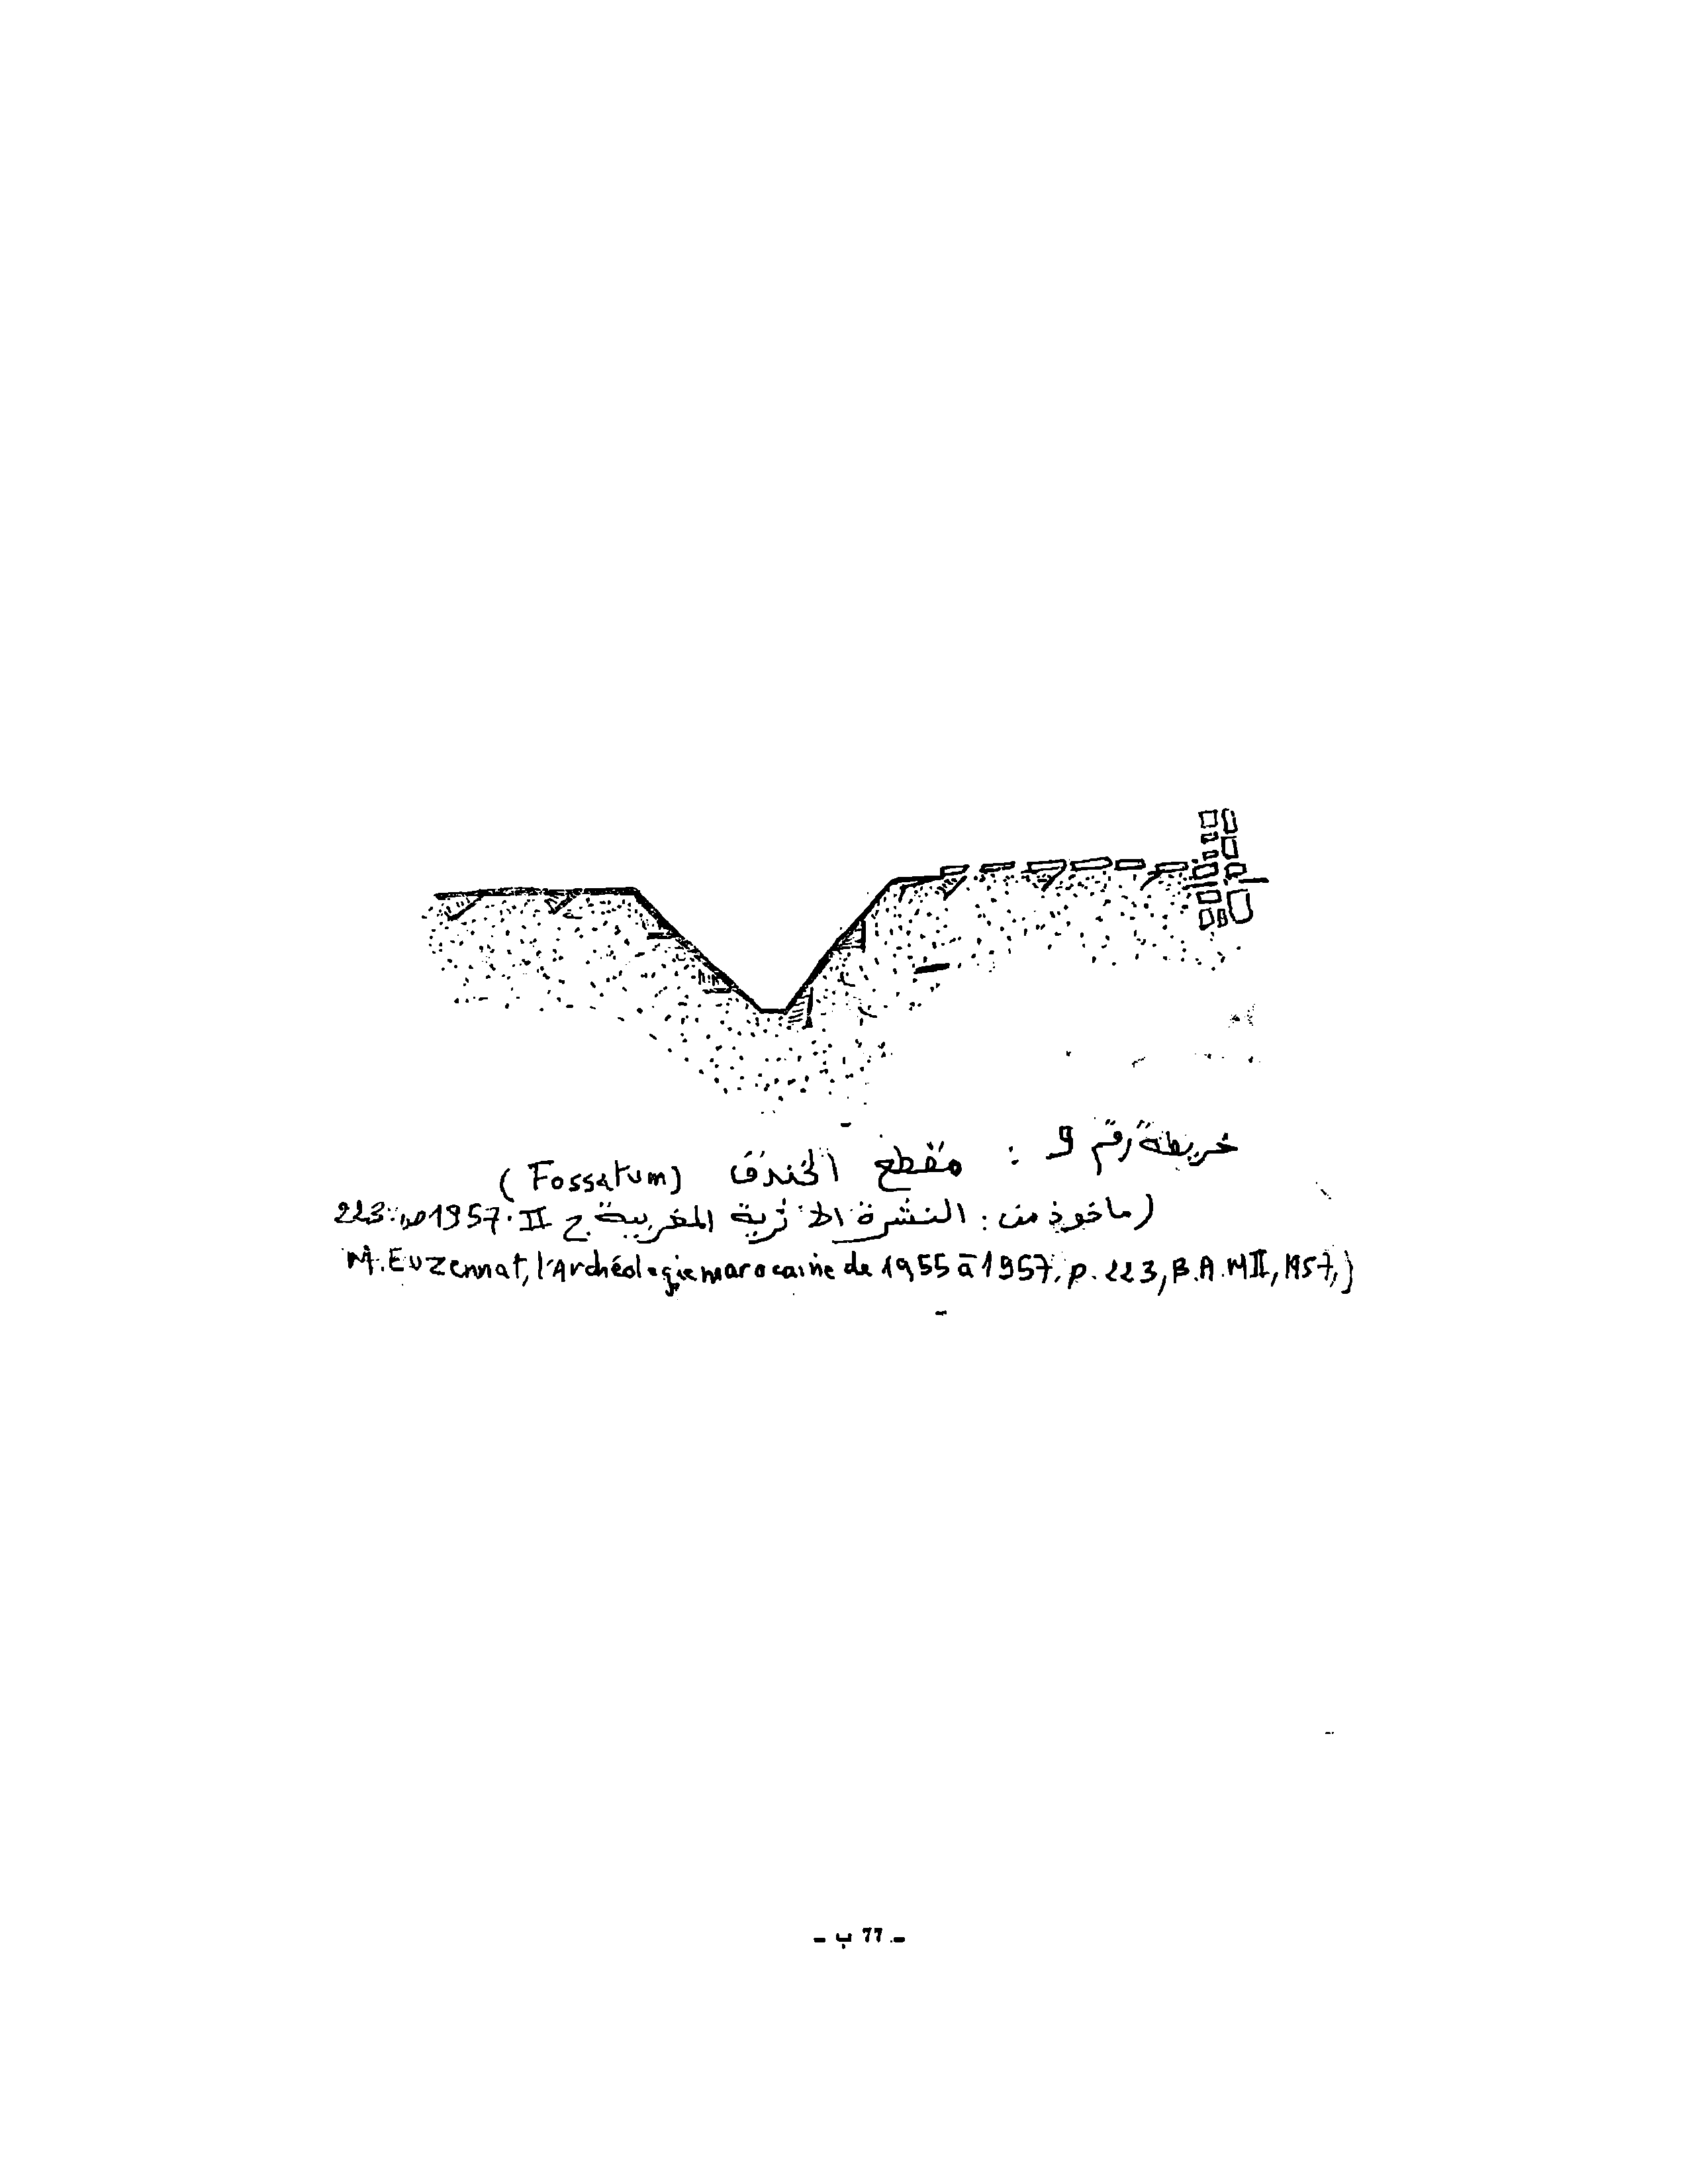 خريطة رقم 9 : مقطع الخندق (Fossatum)
(ماخوذ من : النشرة الاثرية المغربية ج II . 1957 ص: 223
M. Euzennat, l'Archéologie marocaine de 1955 à 1957, p. 223, B.A.M II, 1957,)
- 77 ب -